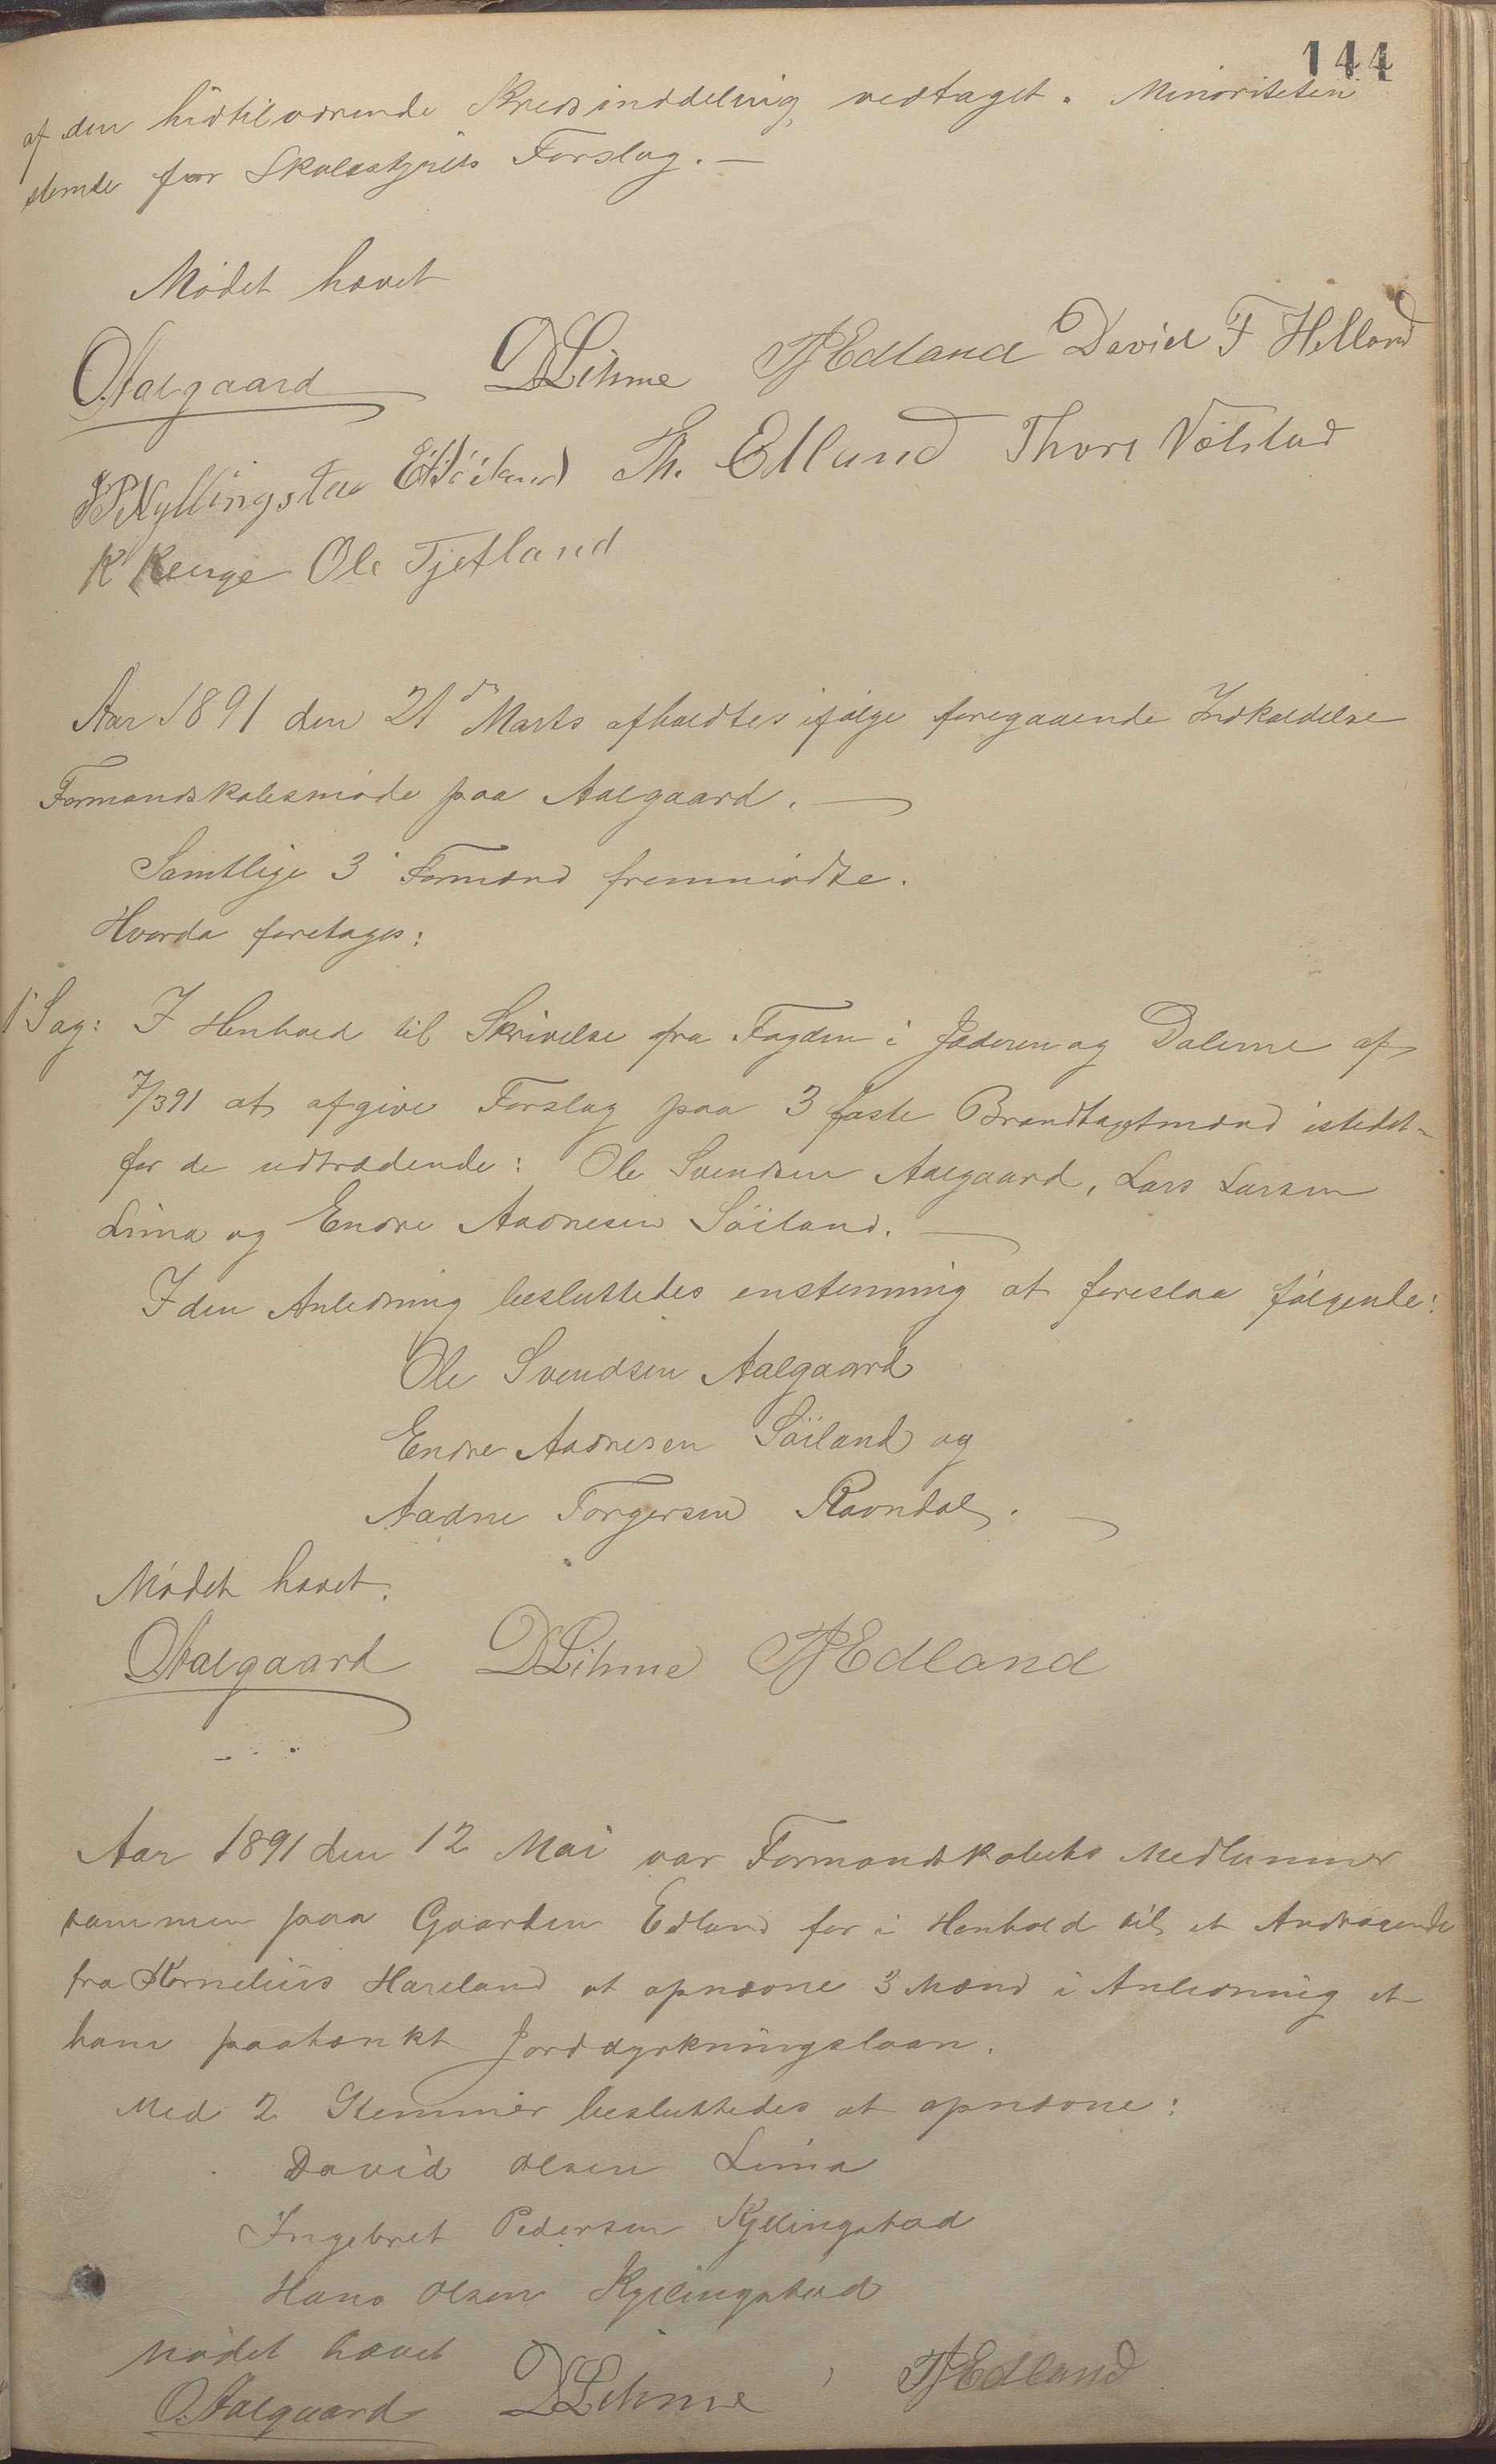 144
af den hidtilværende Kredsinddeling, vedtaget. Minoriteten
stemte for Skolestyrets Forslag. —
Mødet hævet
OAalgaard DLihme TJEdland David F Helland
IPKyllingstad EASøiland Th. Edland Thore Nølstad
K Kenge Ole Tjetland
Aar 1891 den 21de Marts afholdtes ifølge foregaaende Indkaldelse
Formandskabsmøde paa Aalgaard. —
Samtlige 3 Formænd fremmødte.
Hvorda foretages:
1 Sag: I Henhold til Skrivelse fra Fogden i Jæderen og Dalerne af
7/3 91 at afgive Forslag paa 3 faste Brandtagstmænd istedet-
for de udtrædende: Ole Svendsen Aalgaard, Lars Larsen
Lima og Endre Aadnesen Søiland. —
I den Anledning besluttedes enstemmig at foreslaa følgende:
Ole Svendsen Aalgaard
Endre Aadnesen Søiland og
Aadne Torgersen Ravndal. —
Mødet hævet.
OAalgaard DLihme TJEdland
Aar 1891 den 12 Mai var Formandskabets Medlemmer
sammen paa Gaarden Edland for i Henhold til et Andragende
fra Kornelius Hareland at opnævne 3 Mænd i Anledning et
ham paatænkt Jorddyrkningslaan.
Med 2 Stemmer besluttedes at opnævne:
David Olsen Lima
Ingebret Pedersen Kyllingstad
Hans Olsen Kyllingstad
Mødet hævet
OAalgaard DLihme, TJEdland